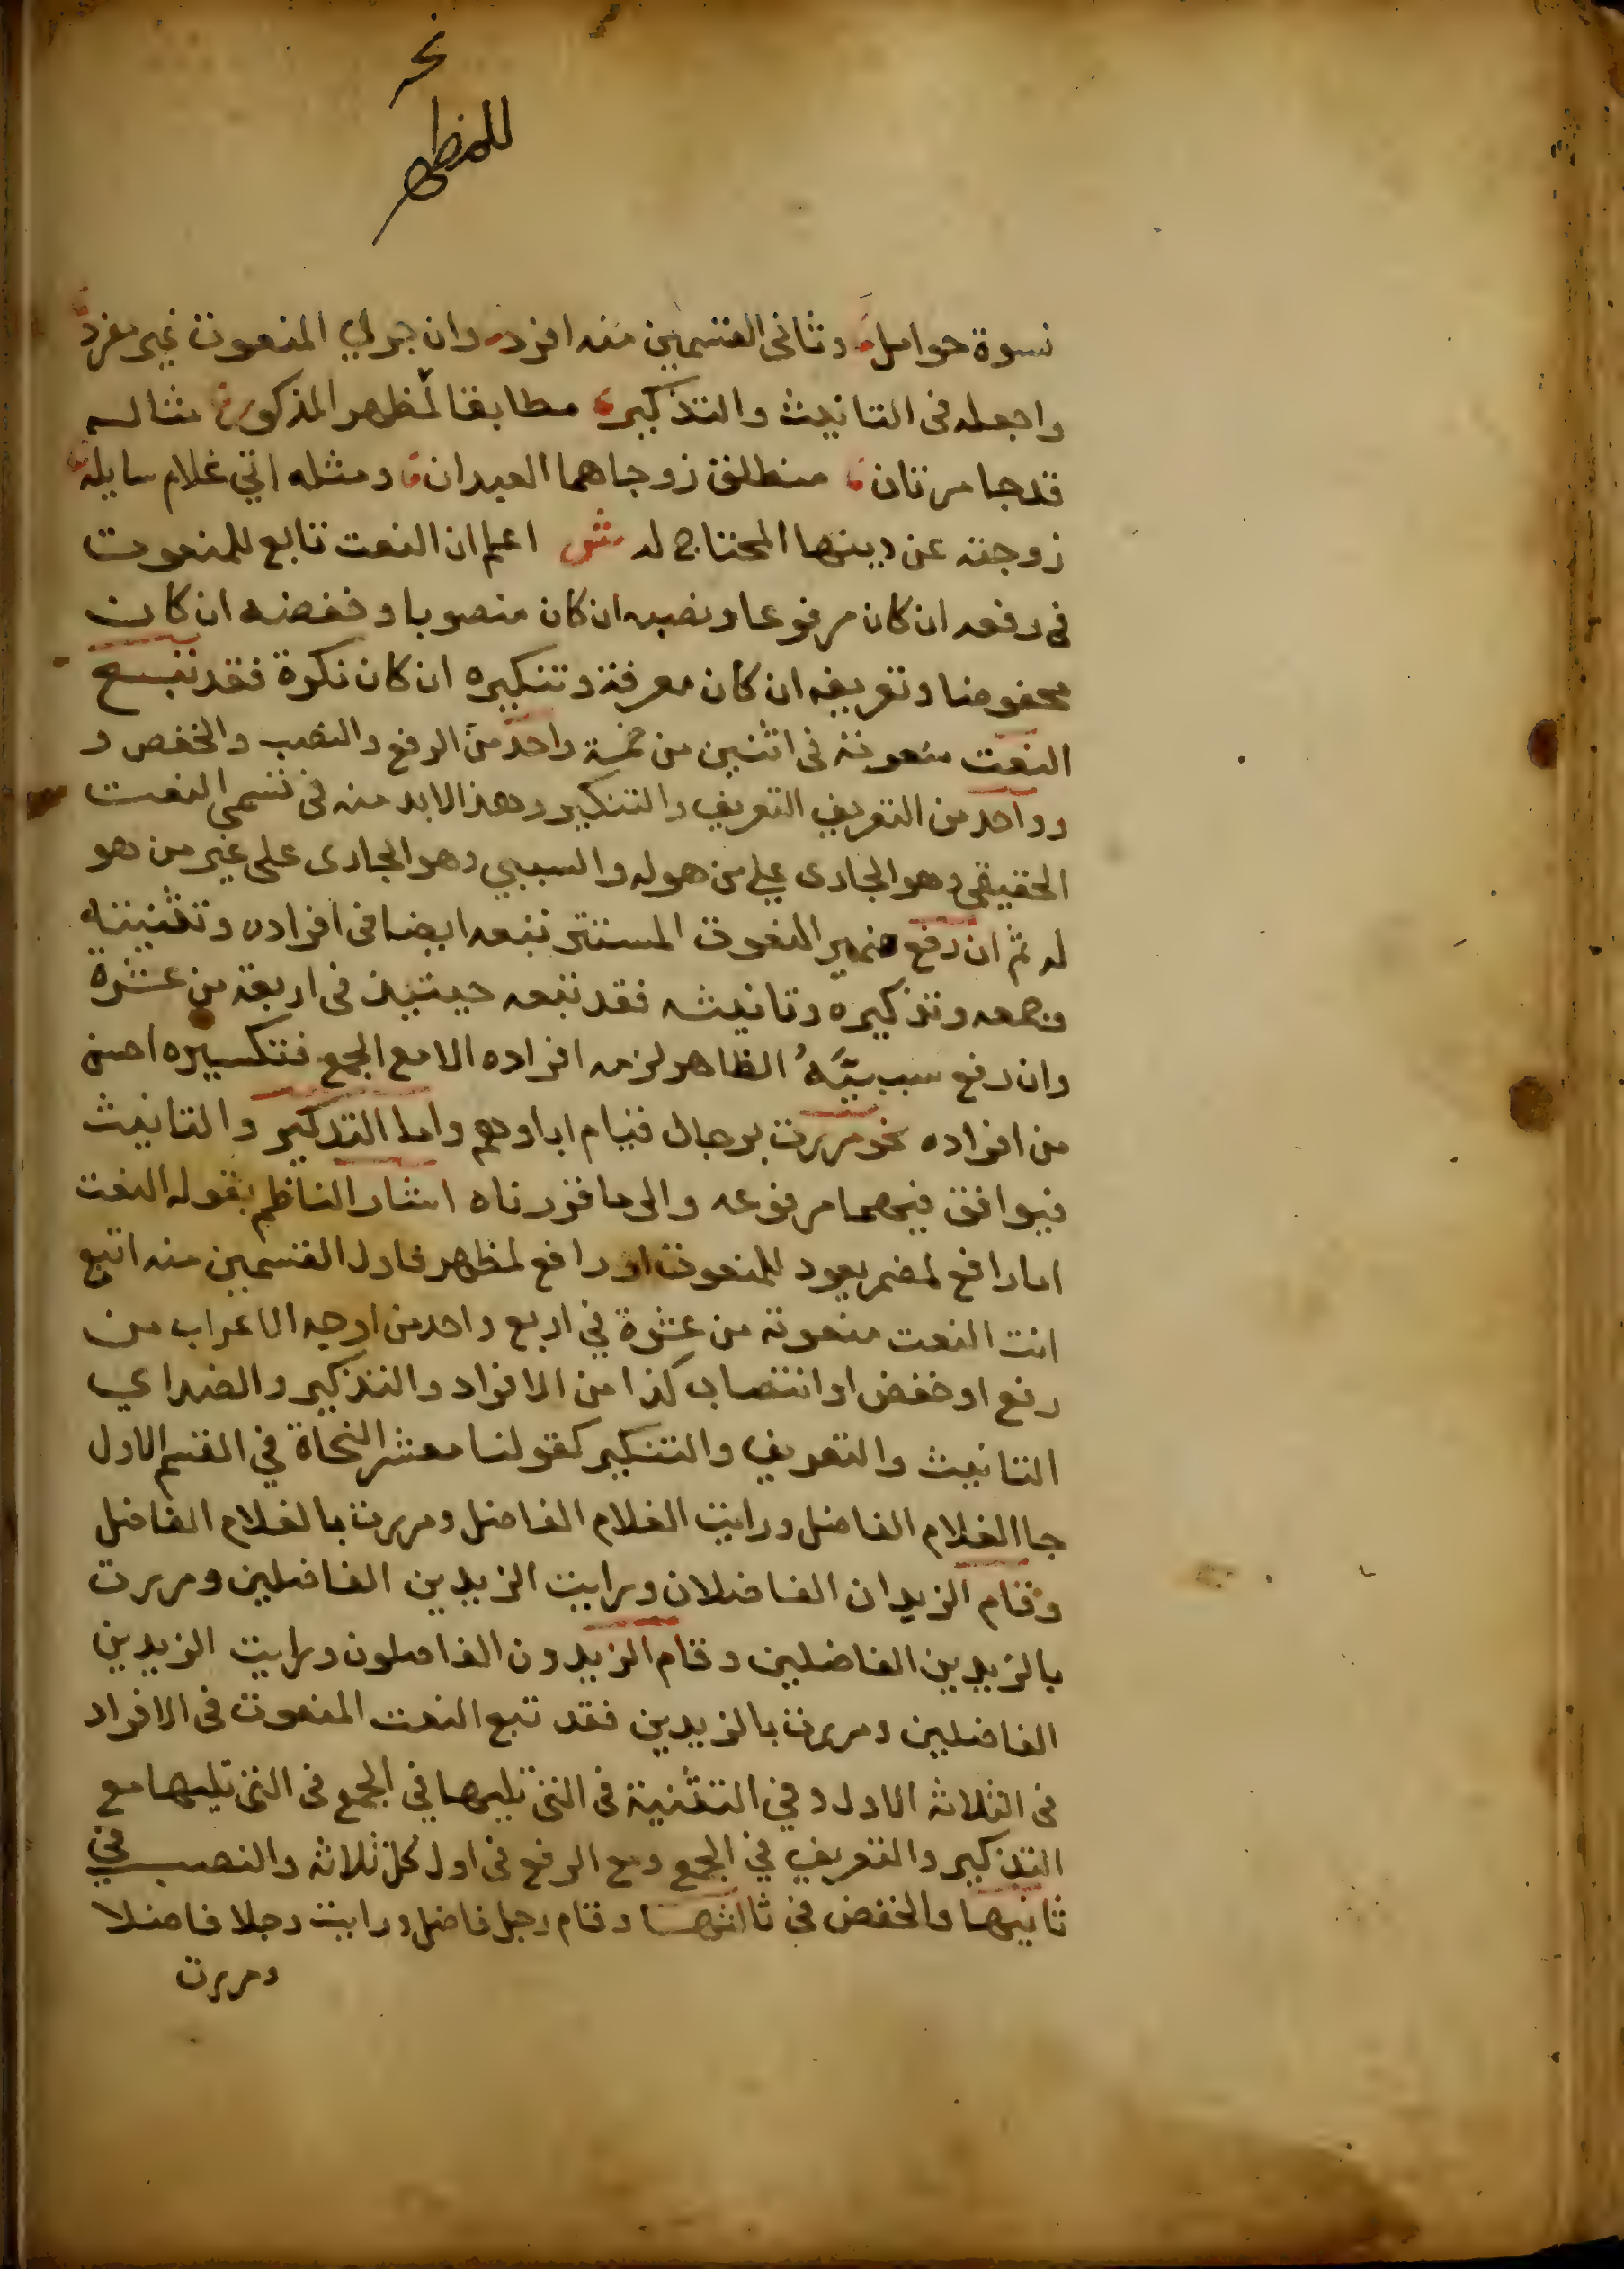 نحو
للمظهر
نسوة حوامل وثاني القسمين منه افرد وان جري المنعوت غير مفرد
واجعله في التانيث والتذكير مطابقا لمظهر المذكور مثاله
قد جا مرتان منطلق زوجاهما العبدان ومثله اتي غلام سايله
زوجته عن دينها المحتاج له ش اعلم ان النعت تابع للمنعوت
في رفعه ان كان مرفوعا ونصبه ان كان منصوبا وخفضه ان كان
مخفوضا وتعريفه ان كان معرفة وتنكيره ان كان نكرة فقد تبع
النعت منعوته في اثنين من خمسة واحد من الرفع والنصب والخفض و
وواحد من التعريف التعريف والتنكير وهذا لابد منه في قسمي النعت
الحقيقي وهو الجاري علي من هو له والسببي وهو الجاري على غير من هو
له ثم ان رفع ضمير المنعوت المستتر تبعه ايضا في افراده وتثنيته
وجمعه وتذكيره وتانيثه فقد تبعه حينيذ في اربعة من عشرة
وان رفع سببيه الظاهر لزمه افراده الا مع الجمع فتكسيره احسن
من افراده نحو مررت برجال قيام اباوهم واما التذكير والتانيث
فيوافق فيهما مرفوعه والى ما قررناه اشار الناظم بقوله النعت
اما رافع لمضمر يعود للمنعوت او رافع لمظهر فاول القسمين منه اتبع
انت النعت منعوته من عشرة في اربع واحد من اوجه الاعراب من
رفع او خفض او انتصاب كذا من الافراد والتذكير والضد اي
التانيث والتعريف والتنكير كقولنا معشر النحاة في القسم الاول
جا الغلام الفاضل ورايت الغلام الفاضل ومررت بالغلام الفاضل
وقام الزيدان الفاضلان ورايت الزيدين الفاضلين ومررت
بالزيدين الفاضلين وقام الزيدون الفاضلون ورايت الزيدين
الفاضلين ومررت بالزيدين فقد تبع النعت المنعوت في الافراد
في الثلاثه الاول وفي التثنية في التي تليها في الجمع في التي تليها مع
التذكير والتعريف في الجمع ومع الرفع في اول كل ثلاثه والنصب في
ثانيها والخفض في ثالثها وقام رجل فاضل ورايت رجلا فاضلا
ومررت